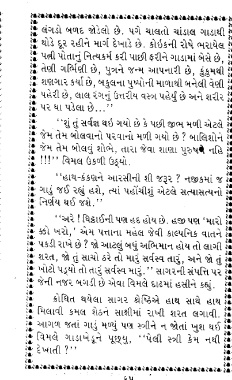 લંગડો બળદ જોડેલો છે. પગે ચાલતો ચાંડાલ ગાડાથી
થોડે દૂર રહીને માર્ગ દેખાડે છે. કોઈકની રોષે ભરાયેલ
પત્ની પોતાનું નિત્યકર્મ કરી પાછી ફરીને ગાડામાં બેસે છે,
તેણી ગર્ભિણી છે, પુત્રને જન્મ આપનારી છે, કુંકુમથી
શણગાર કર્યા છે, બકુલના પુષ્પોની માળાથી બનેલી વેણી
પહેરી છે, લાલ રંગનું ઉત્તરીય વસ્ત્ર પહેર્યું છે અને શરીર
પર ઘા પડેલા છે...”
“શું તું સર્વજ્ઞ થઈ ગયો છે કે પછી જીભ મળી એટલે
જેમ તેમ બોલવાનો પરવાનો મળી ગયો છે ? બાલિશોને
જેમ તેમ બોલવું શોભે, તારા જેવા શાણા પુરુષને નહિ
!!!” વિમલ ઉકળી ઉઠ્યો.
“હાથ-કંકણને આરસીની શી જરૂર ? નજીકમાં જ
ગાડું જઈ રહ્યું હશે, ત્યાં પહોંચીશું એટલે સત્યાસત્યનો
નિર્ણય થઈ જશે.”
“અરે ! ધિઠ્ઠાઈની પણ હદ હોય છે. હજી પણ ‘મારો
ક્કો ખરો,’ એમ પત્તાના મહેલ જેવી કાલ્પનિક વાતને
પકડી રાખે છે ? જો આટલું બધું અભિમાન હોય તો લાગી
શરત, જો તું સાચો ઠરે તો મારું સર્વસ્વ તારું, અને જો તું
ખોટો પડ્યો તો તારું સર્વસ્વ મારું.” સાગરની સંપત્તિ પર
જેની નજર બગડી છે એવા વિમલે દાઢમાં હસીને કહ્યું.
ક્રોધિત થયેલા સાગર શ્રેષ્ઠિએ હાથ સાથે હાથ
મિલાવી કમલ શેઠને સાક્ષીમાં રાખી શરત લગાવી.
આગળ જતાં ગાડું મળ્યું પણ સ્ત્રીને ન જોતાં ખુશ થઈ
વિમલે ગાડાખેડૂને પૂછ્યું, “પેલી સ્ત્રી કેમ નથી
દેખાતી ?”